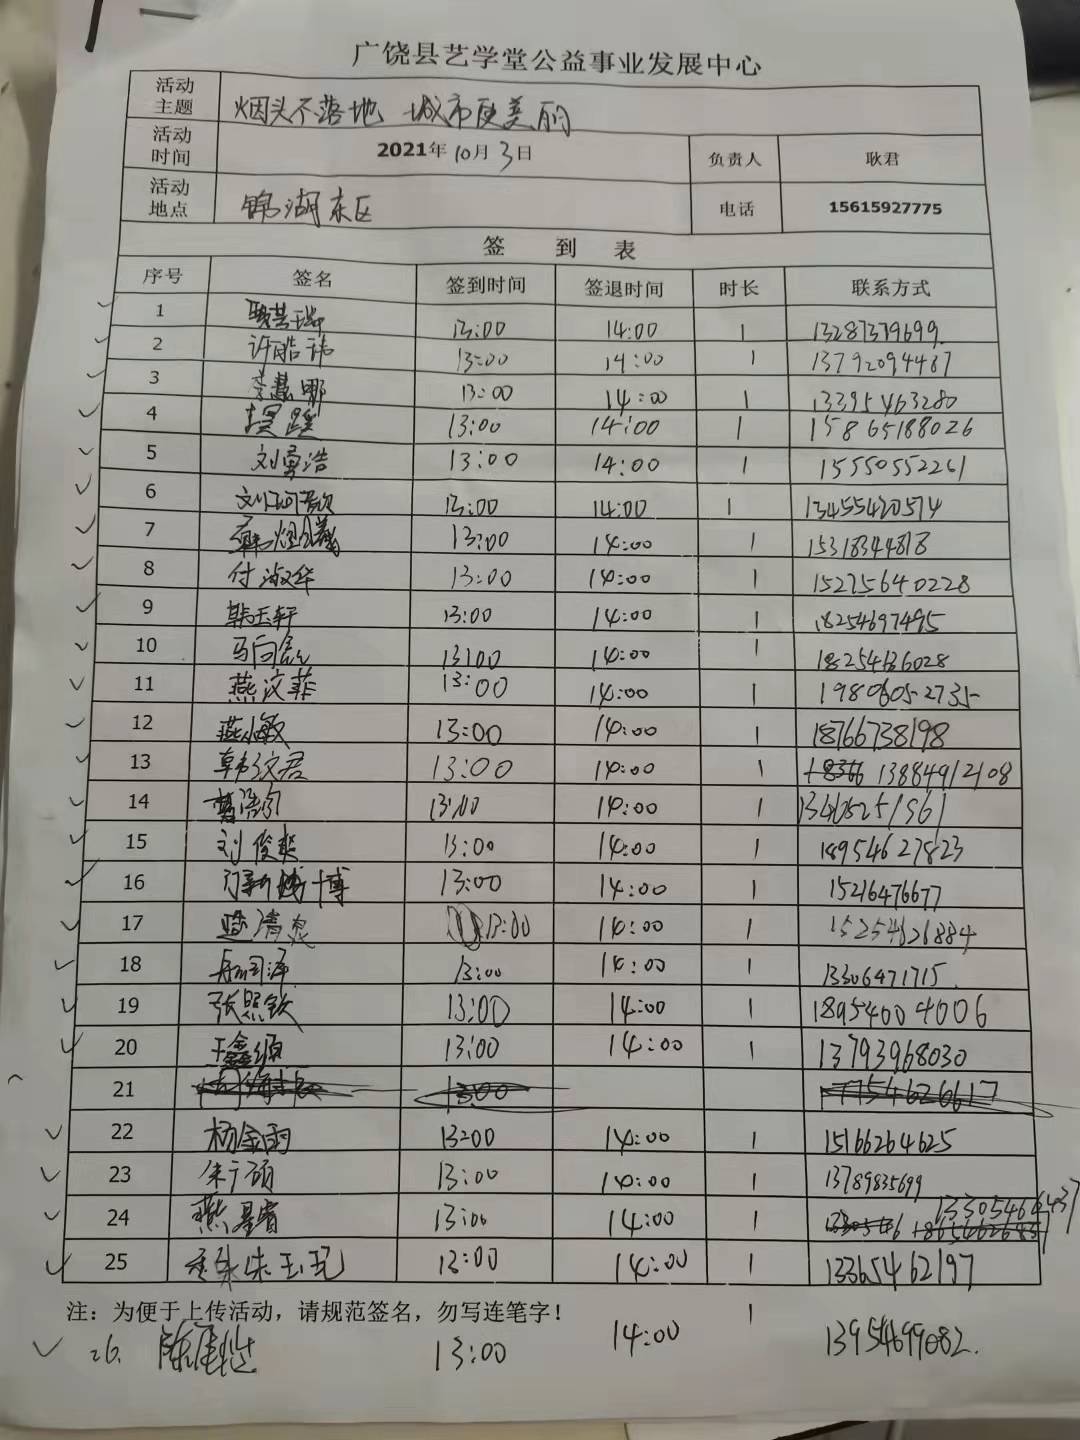 广饶县艺学堂公益事业发展中心
活动主题 烟头不落地 城市更美丽
活动时间 2021年10月3日 负责人 耿君
活动地点 锦湖东区 电话 15615927775
签 到 表
序号 签名 签到时间 签退时间 时长 联系方式
1 13:00 14:00 1 13287379699
2 许皓祎 13:00 14:00 1 13792094487
3 李慧娜 13:00 14:00 1 13395463280
4 13:00 14:00 1 15865188026
5 刘勇浩 13:00 14:00 1 15550552261
6 13:00 14:00 1 13455420574
7 13:00 14:00 1 15318344818
8 付淑华 13:00 14:00 1 15275640228
9 韩玉轩 13:00 14:00 1 18254697495
10 13:00 14:00 1
11 燕汶菲 13:00 14:00 1 19806052735
12 燕小敏 13:00 14:00 1 18766738198
13 韩汶君 13:00 14:00 1 13884912108
14 13:00 14:00 1 13405251561
15 刘俊爽 13:00 14:00 1 18954627823
16 13:00 14:00 1 15216476677
17 13:00 14:00 1 15254626884
18 13:00 14:00 1 13306471715
19 张照钦 13:00 14:00 1 18954004006
20 王鑫源 13:00 14:00 1 13793968030
21 13:00 17754626617
22 杨金雨 13:00 14:00 1 15166264625
23 朱广硕 13:00 14:00 1 13789835699
24 13:00 14:00 1 13305466437
25 朱玉玑 13:00 14:00 1 13365462197
注：为便于上传活动，请规范签名，勿写连笔字！
26. 13:00 14:00 1 13954699082.